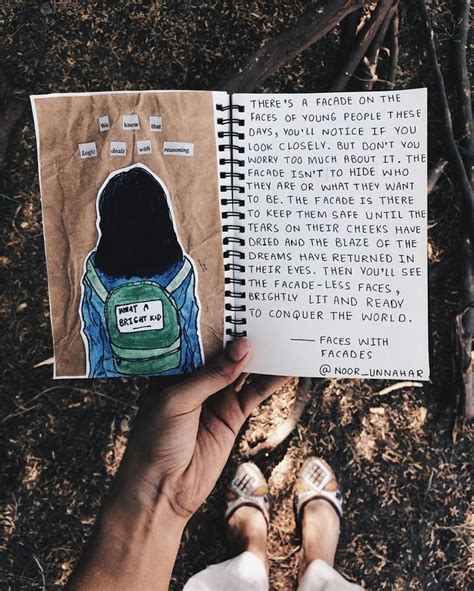 We know that
Logic deals with reasoning.
WHAT A
BRIGHT KID
THERE'S A FACADE ON THE
FACES OF YOUNG PEOPLE THESE
DAYS, YOU'LL NOTICE IF YOU
LOOK CLOSELY. BUT DON'T YOU
WORRY TOO MUCH ABOUT IT. THE
FACADE ISN'T TO HIDE WHO
THEY ARE OR WHAT THEY WANT
TO BE. THE FACADE IS THERE
TO KEEP THEM SAFE UNTIL THE
TEARS ON THEIR CHEEKS HAVE
DRIED AND THE BLAZE OF THE
DREAMS HAVE RETURNED IN
THEIR EYES. THEN YOU'LL SEE
THE FACADE-LESS FACES,
BRIGHTLY LIT AND READY
TO CONQUER THE WORLD.
— FACES WITH
FACADES
@NOOR_UNNAHAR